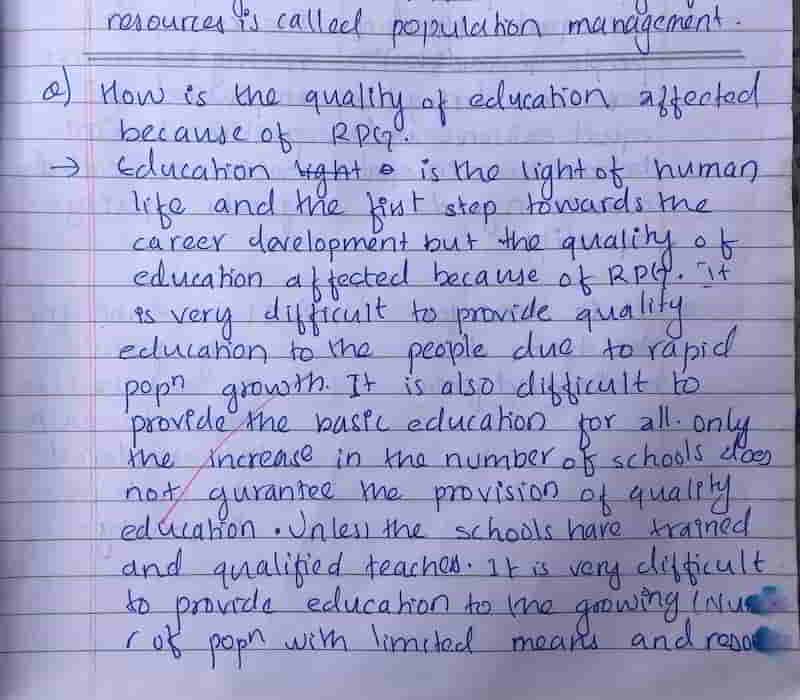 resources is called population management.
Q) How is the quality of education affected
because of RPG?
→ Education light is the light of human
life and the first step towards the
career development but the quality of
education affected because of RPG. It
is very difficult to provide quality
education to the people due to rapid
popn growth. It is also difficult to
provide the basic education for all. only
the increase in the number of schools does
not gurantee the provision of quality
education. Unless the schools have trained
and qualified teaches. It is very difficult
to provide education to the growing
of popn with limited means and